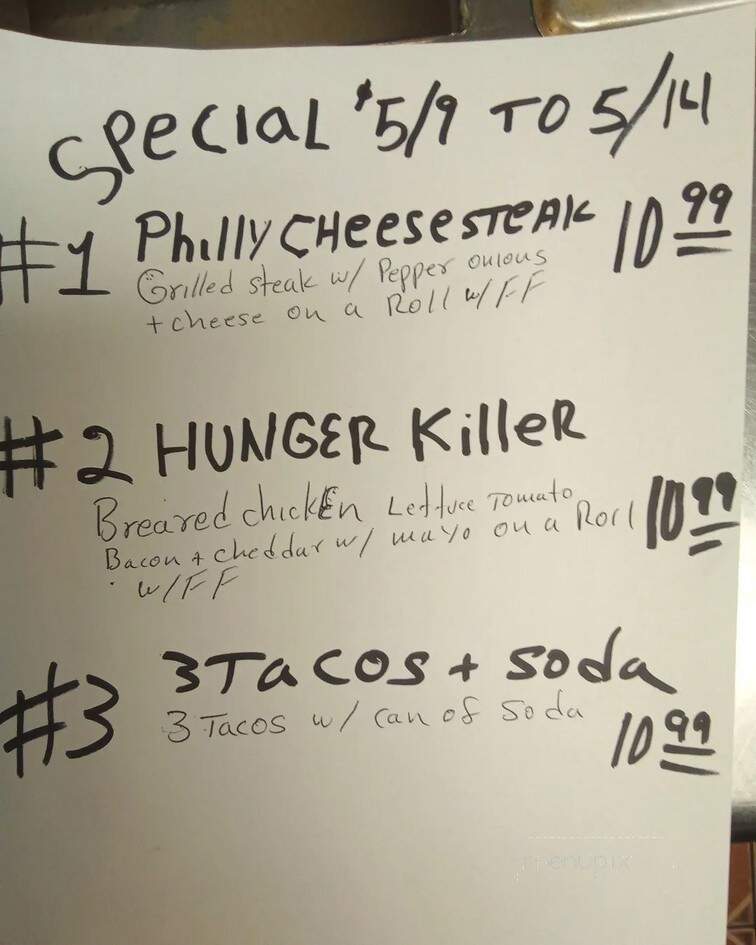 SPECIAL $5/9 TO 5/14
#1 Philly CHEESESTEAK 10 99
Grilled steak w/ Pepper onious
+ cheese on a Roll w/FF
#2 HUNGER Killer
Breared chicken Lettuce Tomato
Bacon + cheddar w/ mayo on a Roll 10 99
w/FF
#3 3 Tacos + soda
3 Tacos w/ can of Soda
10 99
menupix